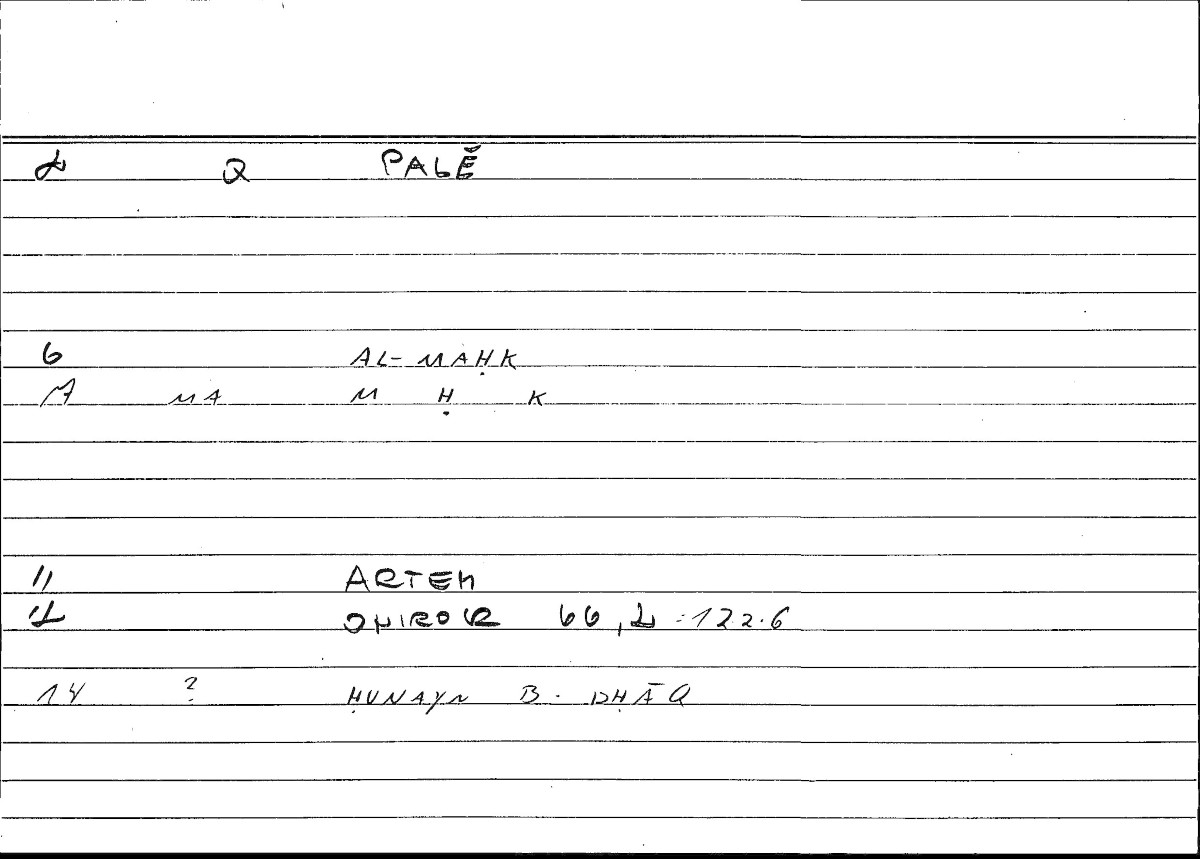 2 Q PALĒ
6 AL-MAḤK
7 MA M Ḥ K
11 ARTEM
12 ONIROCR 66, 2 : 122.6
14 ? ḤUNAYN B. ISḤĀQ